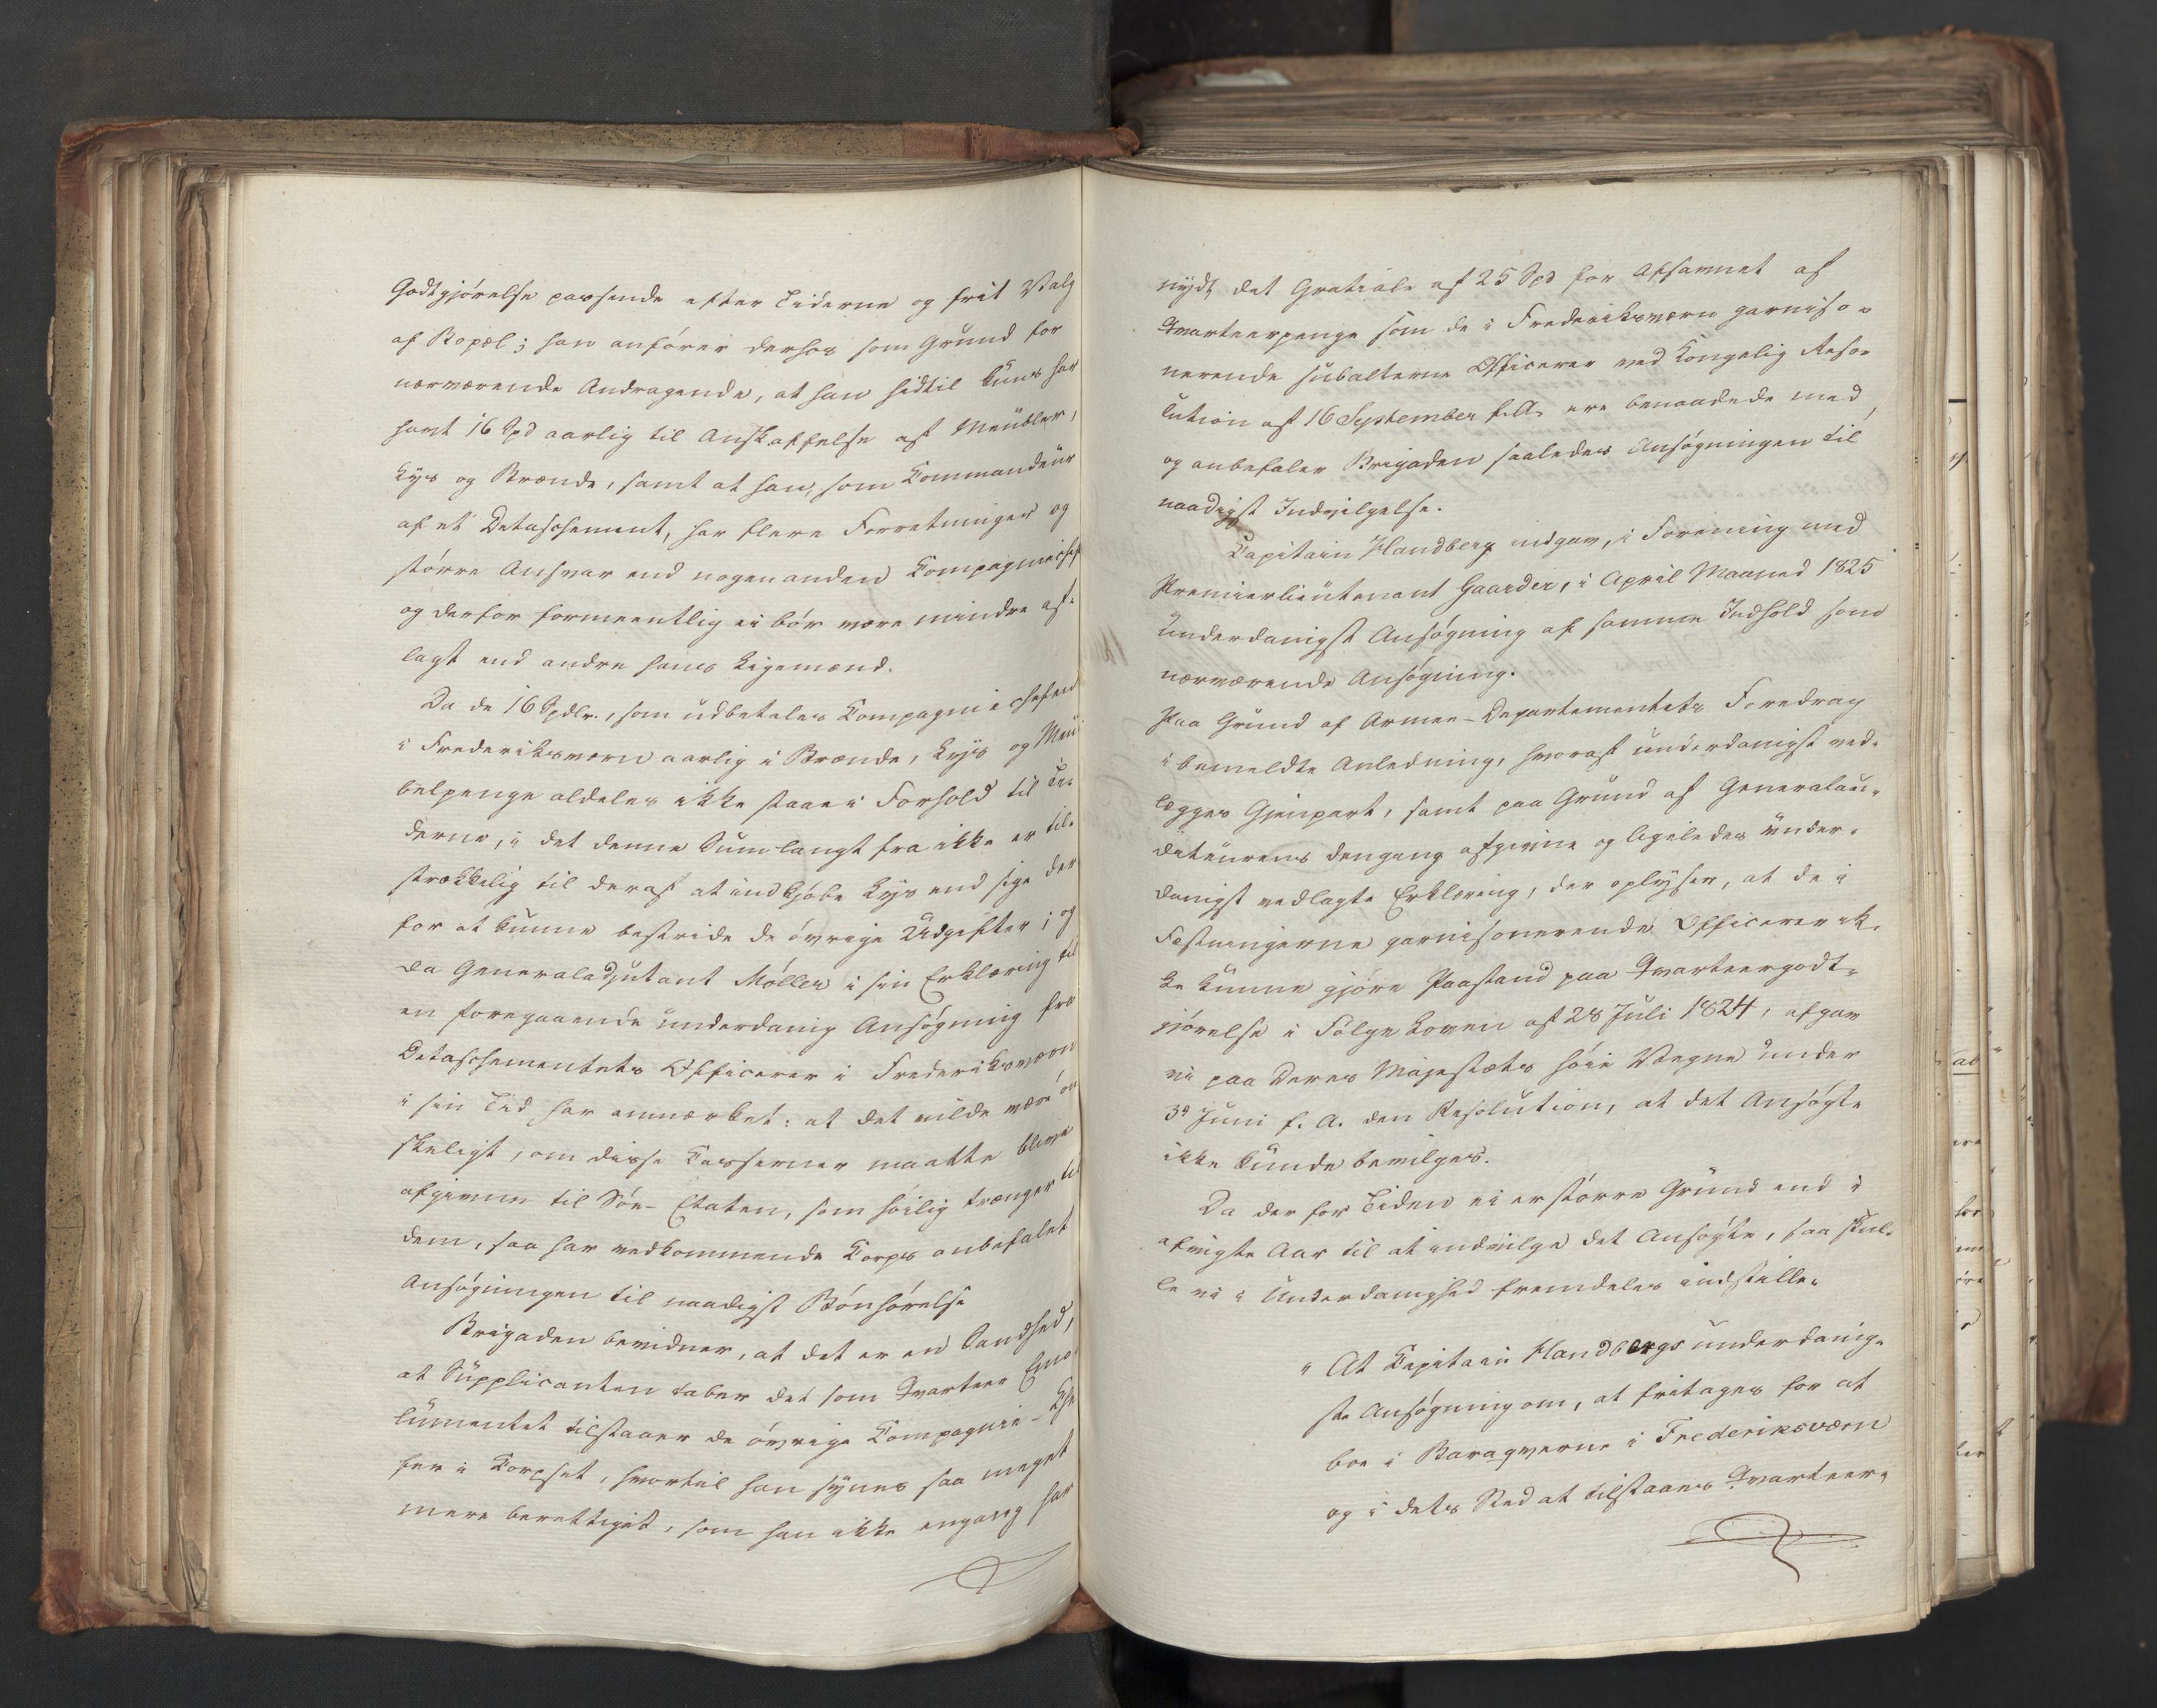 Godtgjørelse passende efter Tiderne og frit Valg
af Bopæl; han anfører derhos som Grund for
nærværende Andragende, at han hidtil kuns har
havt 16 Spd aarlig til Anskaffelse af Meubler,
Lys og Brænde, samt at han, som Commandeur
af et Detaschement, har flere Forretninger og
større Ansvar end nogen anden Compagniechef
og derfor formeentlig ei bør være mindre af-
lagt end andre hans Ligemænd.
Da de 16 Spdlr., som udbetales Compagniechefen
i Frederiksværn aarlig i Brænde, Lys og Meu
belpenge aldeles ikke staae i Forhold til Ti-
derne, i det denne Sum langt fra ikke er til-
strækkelig til deraf at indkjøbe Lys end sige der
for at kunne bestride de øvrige Udgifter; og
da Generaladjutant Møller i sin Erklæring til
en foregaaende underdanig Ansøgning fra
Detaschementets Officerer i Frederiksværn
i sin Tid har anmærket: at det vilde være øn
skeligt, om disse Casserner maatte blive
afgivne til Søe-Etaten, som høilig trænger til
dem, saa har vedkommende Corps anbefalet
Ansøgningen til naadigst Bønhørelse
Brigaden bevidner, at det er en Sandhed,
at Supplicanten taber det som Qvarteer Emo
lumentet tilstaaer de øvrige Compagnie-Che
fer i Corpset, hvortil han synes saa meget
mere berettiget, som han ikke engang har
nydt det Gratiale af 25 Spd for Afsavnet af
Qvarteerpenge som de i Frederiksværn garniso-
nerende subalterne Officerer ved Kongelig Reso-
lution af 16 September f. A. ere benaadede med,
og anbefaler Brigaden saaledes Ansøgningen til
naadigst Indvilgelse.
Capitain Handberg indgav, i Forening med
Premierlieutenant Gaarder, i April Maaned 1825
underdanigst Ansøgning af samme Indhold som
nærværende Ansøgning.
Paa Grund af Armee-Departementets Foredrag
i bemeldte Anledning, hvoraf underdanigst ved-
lægges Gjenpart, samt paa Grund af Generalau-
diteurens dengang afgivne og ligeledes under-
danigst vedlagte Erklæring, der oplyser, at de i
Fæstningerne garnisonerende Officerer ik-
ke kunne gjøre Paastand paa Qvarteergodt-
gjørelse i Følge Loven af 28 Juli 1824, afgav
vi paa Deres Majestæts høie Vegne under
3d Juni f. A. den Resolution, at det Ansøgte
ikke kunde bevilges.
Da der for Tiden ei er større Grund end i
afvigte Aar til at indvilge det Ansøgte, saa skul-
le vi i Underdanighed fremdeles indstille:
"At Capitain Handbergs underdanig-
ste Ansøgning om, at fritages for at
boe i Baraqverne i Frederiksværn
og i dets Sted at tilstaaes Qvarteer-